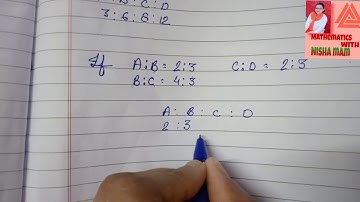 A : B : C : D
3 : 6 : 8 : 12
If A:B = 2:3 C:D = 2:3
B:C = 4:3
A : B : C : D
2 : 3
MATHEMATICS
WITH
NISHA MAM